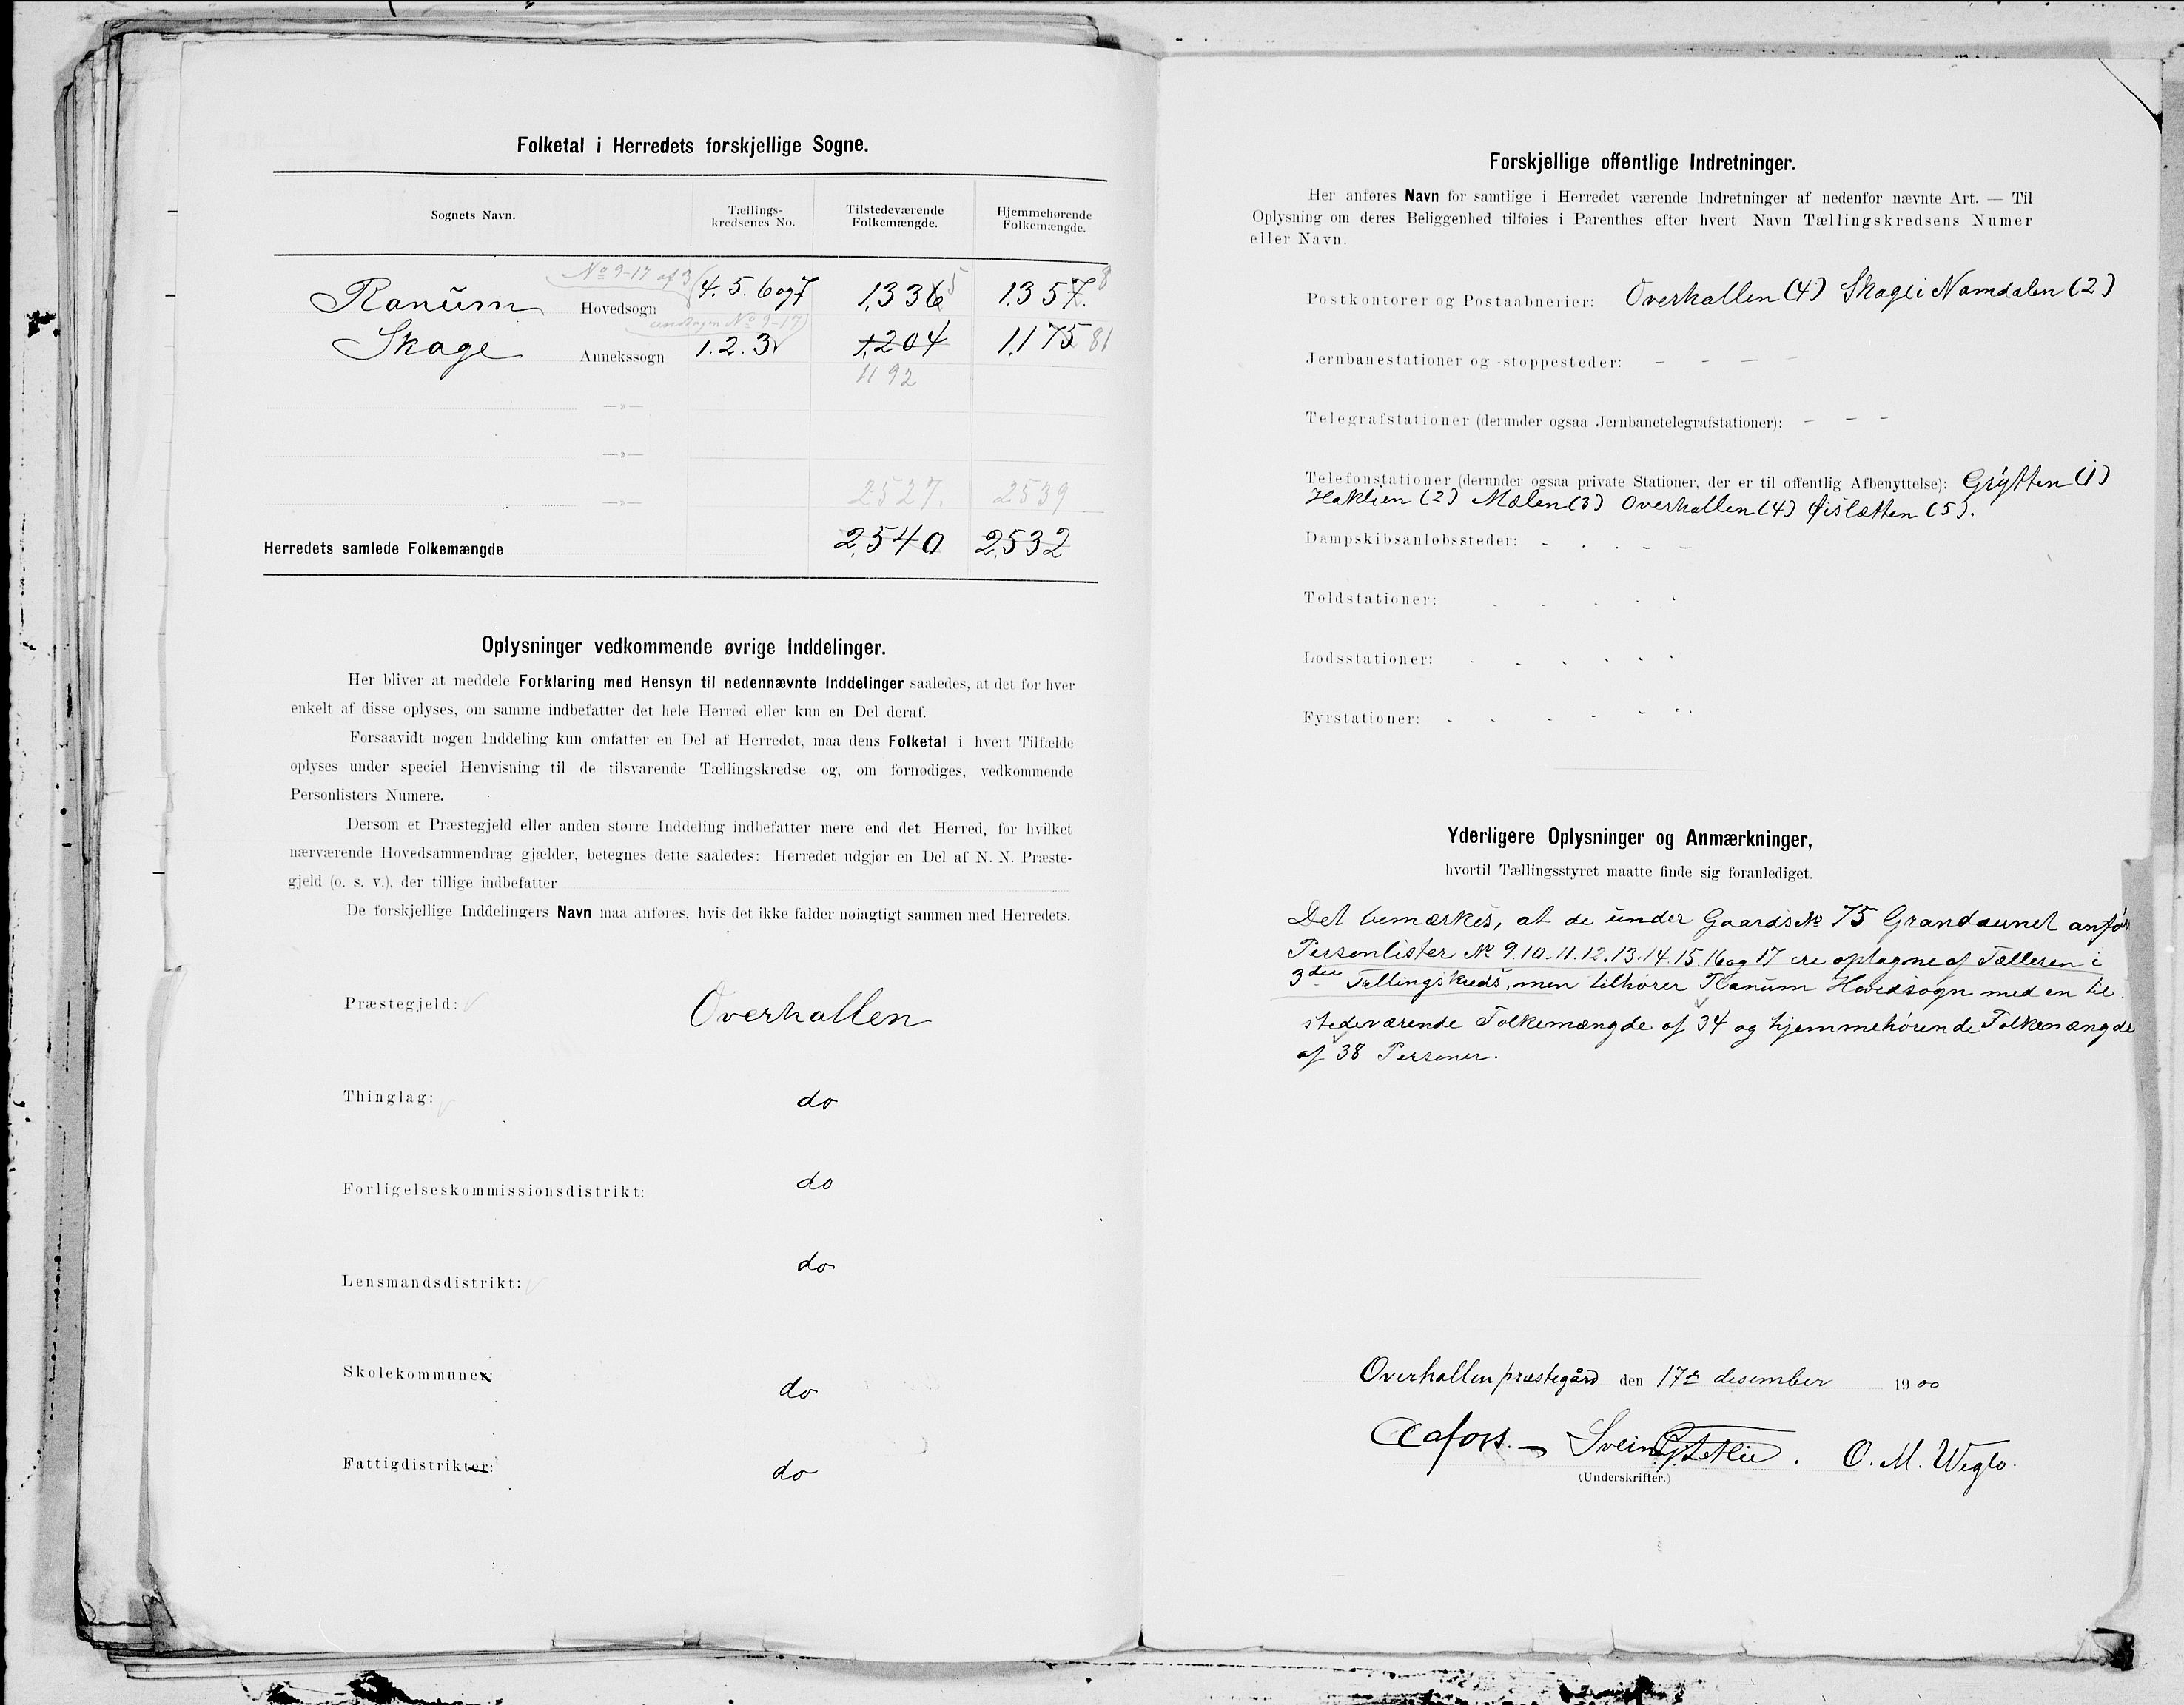 Folketal i Herredets forskjellige Sogne.
Sognets Navn.
Tællings-
kredsenes No.
Tilstedeværende
Folkemængde.
Hjemmehørende
Folkemængde.
No 9-17 af 3
Ranum Hovedsogn 4. 5. 6 og 7 1,336 5 1,357. 8
undtagen No 9-17
Skage Annekssogn 1. 2. 3 1,204 1,175 81
1192
—»—
—»—
2527. 2539
—»—
Herredets samlede Folkemængde 2,540 2,532
Oplysninger vedkommende øvrige Inddelinger.
Her bliver at meddele Forklaring med Hensyn til nedennævnte Inddelinger saaledes, at det for hver
enkelt af disse oplyses, om samme indbefatter det hele Herred eller kun en Del deraf.
Forsaavidt nogen Inddeling kun omfatter en Del af Herredet, maa dens Folketal i hvert Tilfælde
oplyses under speciel Henvisning til de tilsvarende Tællingskredse og, om fornødiges, vedkommende
Personlisters Numere.
Dersom et Præstegjeld eller anden større Inddeling indbefatter mere end det Herred, for hvilket
nærværende Hovedsammendrag gjælder, betegnes dette saaledes: Herredet udgjør en Del af N. N. Præste-
gjeld (o. s. v.), der tillige indbefatter
De forskjellige Inddelingers Navn maa anføres, hvis det ikke falder nøiagtigt sammen med Herredets.
Præstegjeld: Overhallen
Thinglag: do
Forligelseskommissionsdistrikt: do
Lensmandsdistrikt: do
Skolekommuner: do
Fattigdistrikter: do
Forskjellige offentlige Indretninger.
Her anføres Navn for samtlige i Herredet værende Indretninger af nedenfor nævnte Art. — Til
Oplysning om deres Beliggenhed tilføies i Parenthes efter hvert Navn Tællingskredsens Numer
eller Navn.
Postkontorer og Postaabnerier: Overhallen (4) Skage i Namdalen (2)
Jernbanestationer og -stoppesteder: - - - -
Telegrafstationer (derunder ogsaa Jernbanetelegrafstationer): - - -
Telefonstationer (derunder ogsaa private Stationer, der er til offentlig Afbenyttelse): Grytten (1)
Haklien (2) Mælen (3) Overhallen (4) Øisletten (5).
Dampskibsanløbssteder: - - - - -
Toldstationer: - - - - -
Lodsstationer: - - - - - -
Fyrstationer: - - - - - - -
Yderligere Oplysninger og Anmærkninger,
hvortil Tællingsstyret maatte finde sig foranlediget.
Det bemærkes, at de under Gaards No 75 Grandaunet
Personlister No 9. 10. 11. 12. 13. 14. 15. 16 og 17 ere optagne af Tælleren i
3die Tællingskreds, men tilhører Ranum Hovedsogn med en til
stedeværende Folkemængde af 34 og hjemmehørende Folkemængde
af 38 Personer.
Overhallen præstegård den 17de desember 1900
Aafoss. - Svein O. M. Weglo.
(Underskrifter.)